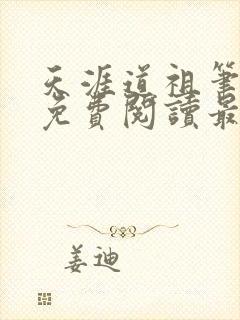 天涯道祖筆
免費閱讀最
姜迪